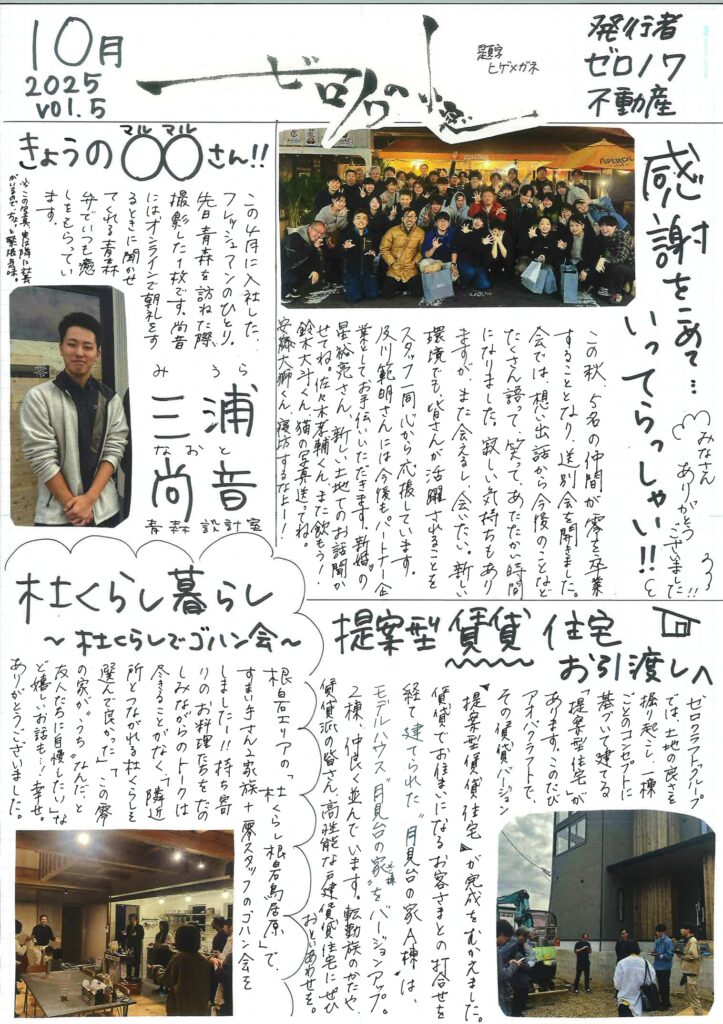 10月
2025
vol.5
ゼロノワの小窓
題字
ヒゲメガネ
発行者
ゼロノワ
不動産
きょうの〇〇さん!!
マル マル
この4月に入社した、
フレッシュマンのひとり。
先日青森を訪ねた際、
撮影した1枚です。尚音
にはオンラインで朝礼をす
るときに聞かせ
てくれる青森
弁でいつも癒
しをもらってい
ます。
みうら
三浦
なおと
尚音
青森設計室
感謝をこめて…
いってらっしゃい!!
みなさん
ありがとう
ございました!!
この秋、5名の仲間が零を卒業
することとなり、送別会を開きました。
会では、想い出話から今後のことなど
たくさん語って、笑って、あたたかい時間
になりました。寂しい気持ちもあり
ますが、また会えるし、会いたい。新しい
環境でも皆さんが活躍されることを
スタッフ一同心から応援しています。
及川範明さんには今後もパートナー企
業としてお手伝いいただきます。新婚の
星裕亮さん、新しい土地でのお話聞か
せてね。佐々木孝輔くん、また飲もう!
鈴木大斗くん、猫の写真送ってね。
安藤大獅くん、寝坊するなよー!
杜くらし暮らし
〜杜くらしでゴハン会〜
根白石エリアの「杜くらし根白石鳥居原」で、
すまい手さん2家族+零スタッフのゴハン会を
しましたー!!持ち寄
りのお料理たちをたの
しみながらのトークは
尽きることがなく、「隣近
所とつながれる杜くらしを
選んで良かった」「この零
の家が、うちなんだと
友人たちに自慢したい」な
ど嬉しいお話も…!幸せ。
ありがとうございました。
提案型賃貸住宅
お引渡しへ
ゼロクラフトグループ
では、土地の良さを
掘り起こし、一棟
ごとのコンセプトに
基づいて建てる
「提案型住宅」が
あります。このたび
アオバクラフトで、
その賃貸バージョン
『提案型賃貸住宅』が完成をむかえました。
賃貸でお住まいになるお客さまとの打合せを
経て建てられた"月見台の家A棟"は、
モデルハウス"月見台の家"をバージョンアップ。
2棟、仲良く並んでいます。転勤族のかたや、
賃貸派の皆さん、高性能な戸建賃貸住宅にぜひ
おといあわせを。